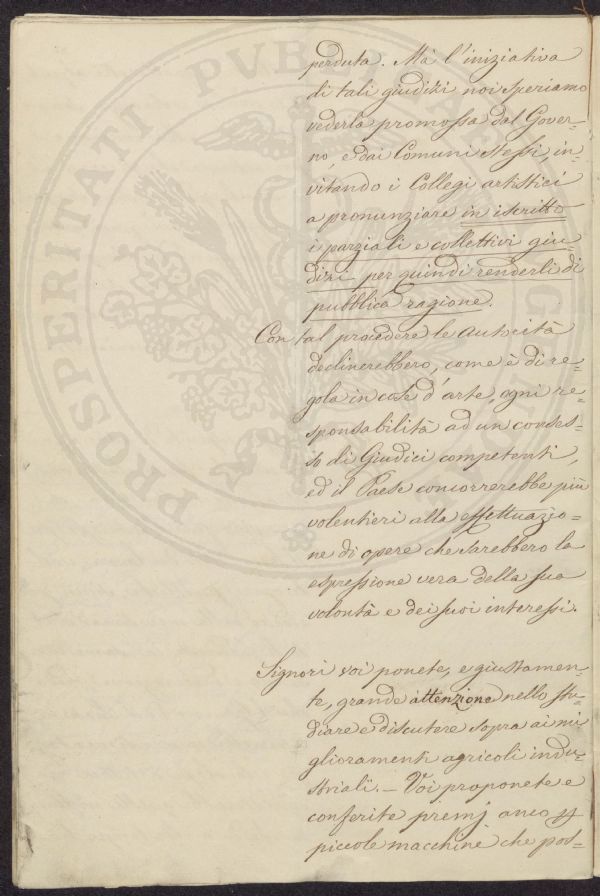 perduta. Mà l'iniziativa
di tali giudizi noi speriamo
vederla promossa dal Gover-
no, e dai Comuni stessi, in-
vitando i Collegi artistici
a pronunziare in iscritto
i parziali e collettivi giu-
dizi per quindi renderli di
pubblica ragione.
Con tal procedere le autorità
declinerebbero, come è di re-
gola in cose d'arte, ogni re-
sponsabilità ad un conses-
so di Giudici competenti,
ed il Paese concorrerebbe più
volentieri alla effettuazio-
ne di opere che sarebbero la
espressione vera della sua
volontà e dei suoi interessi.
Signori voi ponete, e giustamen-
te, grande attenzione nello stu-
diare e discutere sopra ai mi
glioramenti agricoli indu-
striali. — Voi proponete e
conferite premj anco
piccole macchine che pos-
PROSPERITATI PUBLICAE